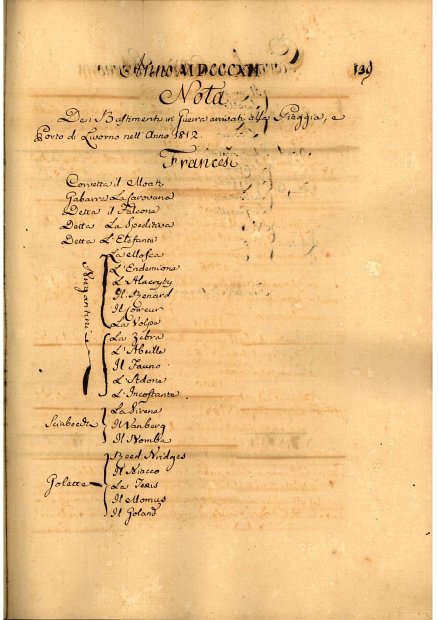 Anno MDCCCXII
139
Nota
Dei Bastimenti in Guerra arrivati alla Piaggia, e
Porto di Livorno nell'Anno 1812
Francesi
Corvetta il Moati
Gabarra La Carovana
Detta il Falcone
Detta La Speditiva
Detta L'Elefante
Brigantini
La Mosca
L'Endemione
L'Alacryty
Il Renard
Il Coureur
La Volpe
La Zebra
L'Abeille
Il Fauno
L'Adone
L'Incostante
Sciabecchi
La Sirena
Il Vanberg
Il Nomba
Golette
Beed Bridges
Il Biacco
La Teris
Il Momus
Il Goland